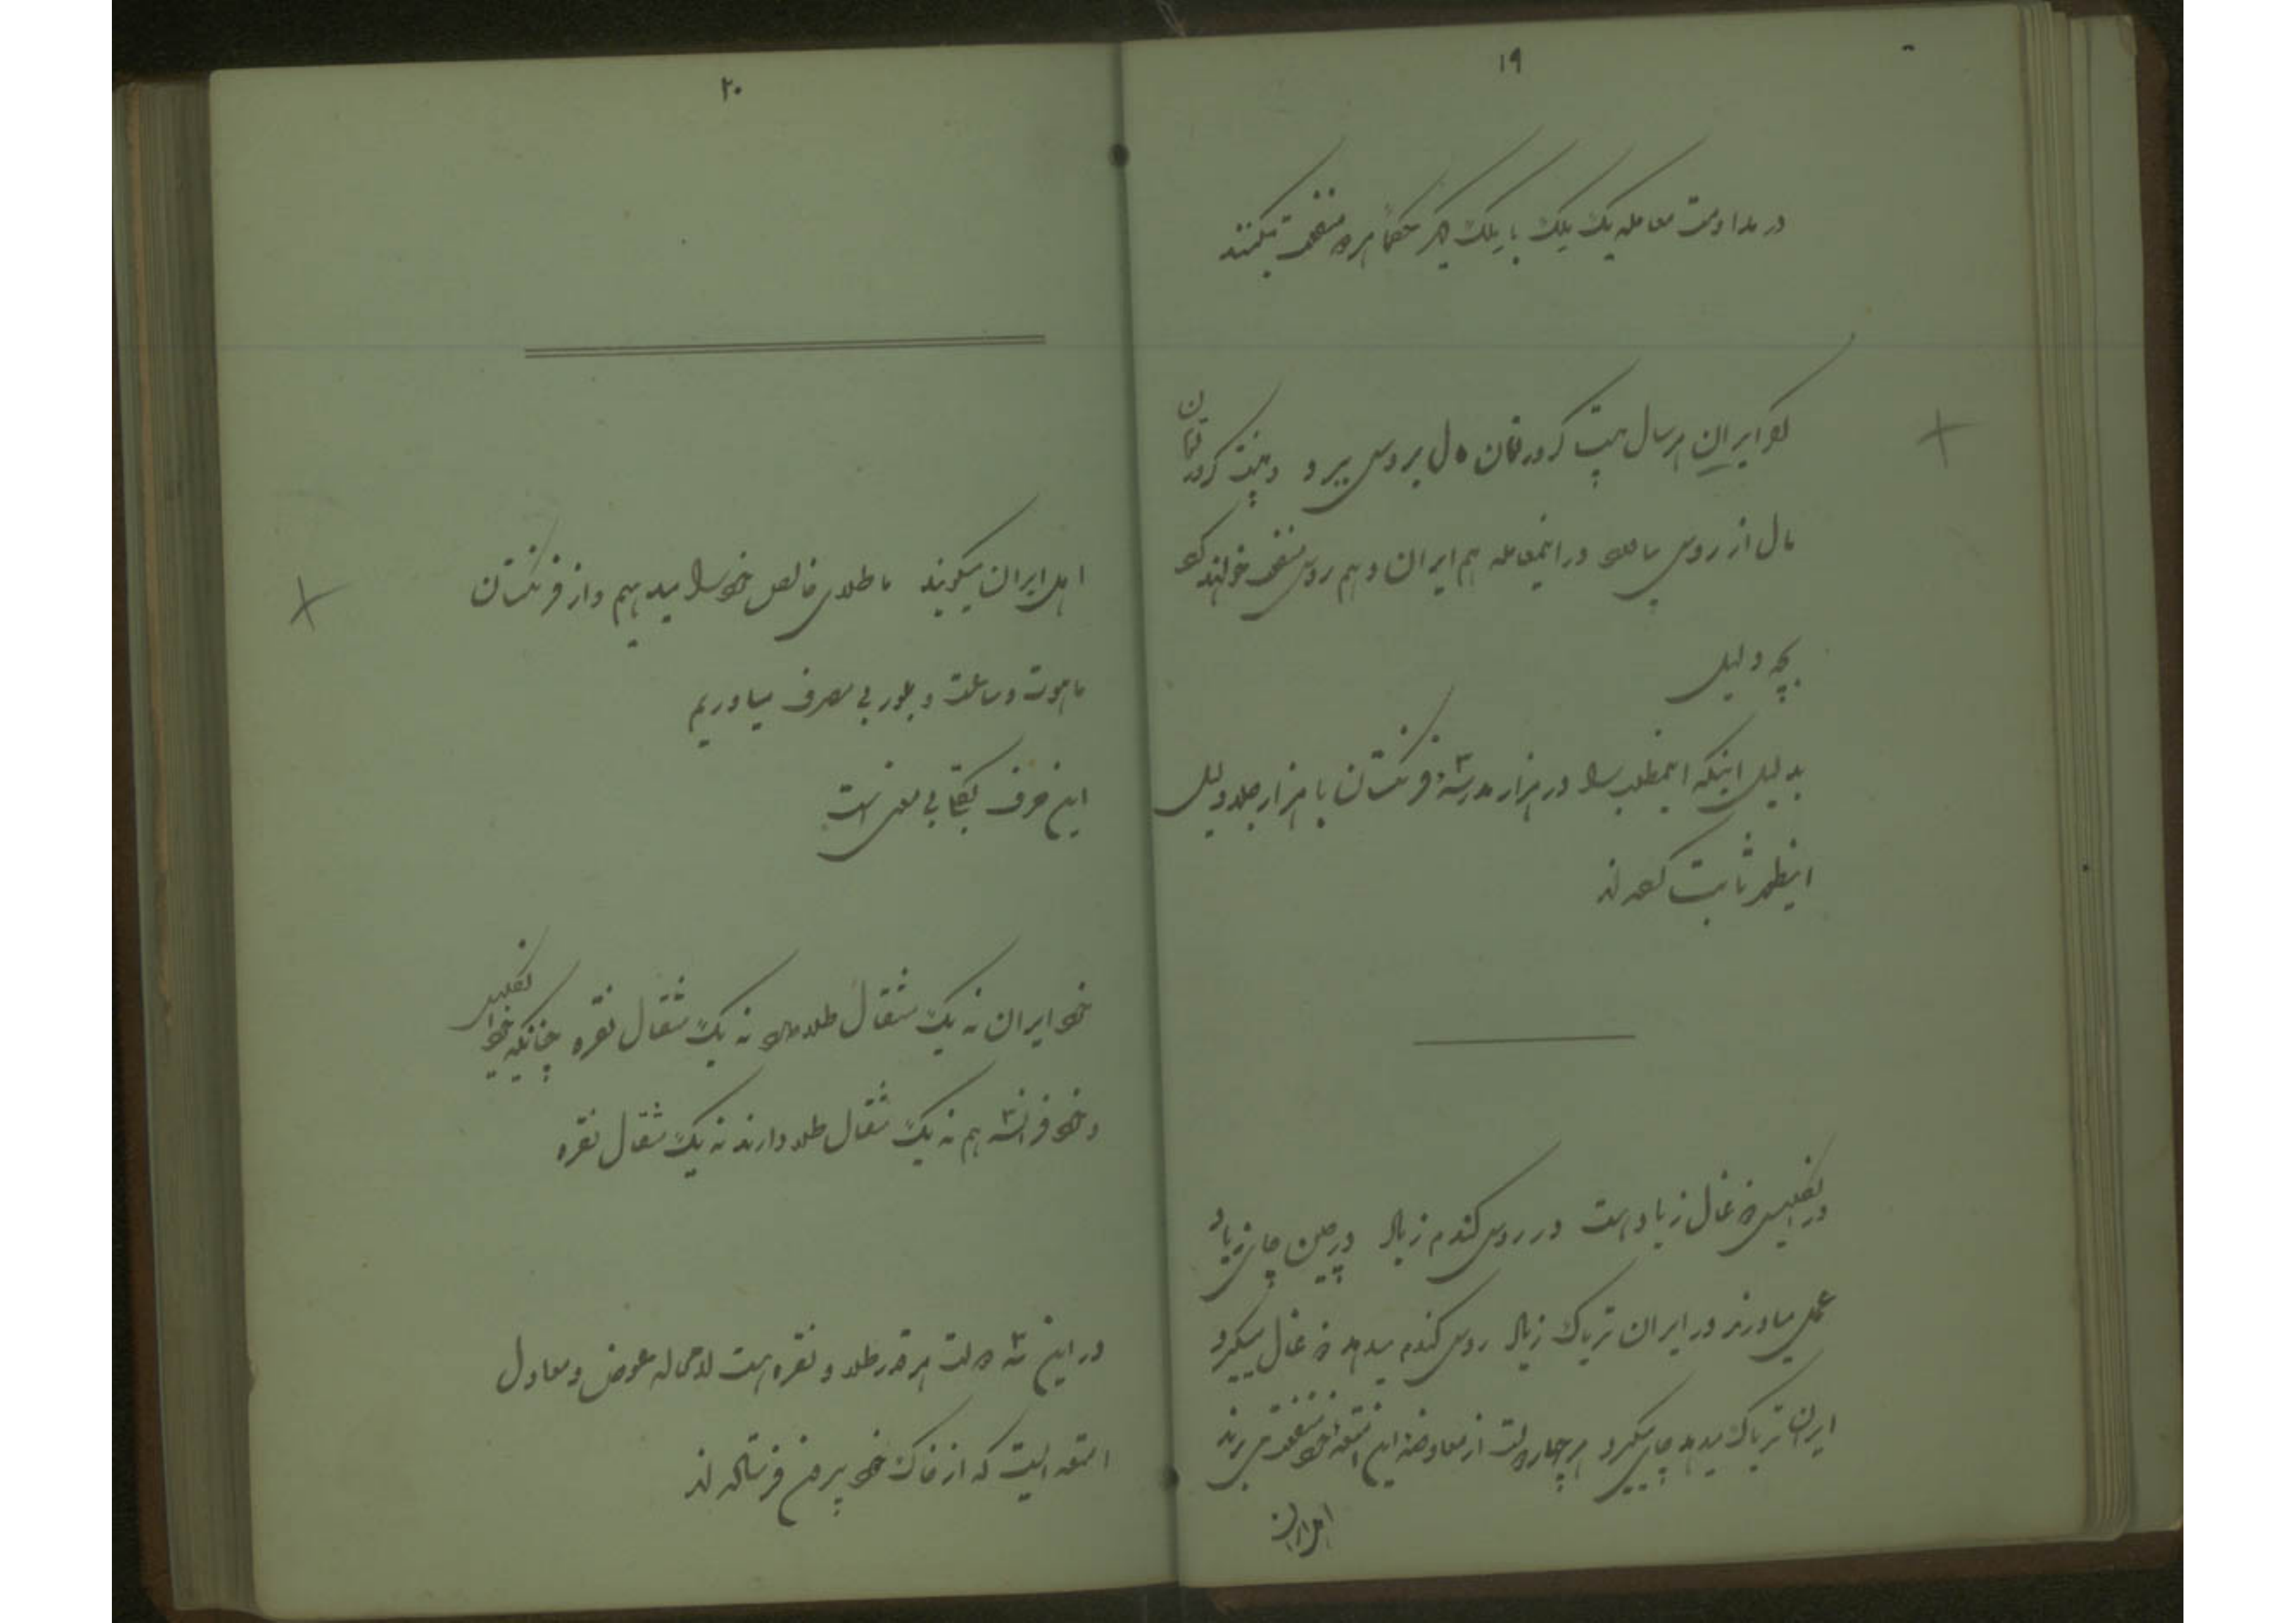 ۱۹
در مداومت معامله یک ملک با ملک دیگر حکماً هر دو منفعت میکنند
اگر ایران هر سال بیست کرور تومان مال بروس ببرد و بیست کرور تومان
مال از روس بیاورد در اینمعامله هم ایران و هم روس منفعت خواهند کرد
بچه دلیل
بدلیل اینکه اینمطلب را در هزار مدرسهٔ فرنگستان با هزار جلد دلیل
اینطور ثابت کرده اند
در انگلیس ذغال زیاد است در روس گندم زیاد در چین چای زیاد
عمل میاورند در ایران تریاک زیاد روس گندم میدهد ذغال میگیرد
ایران تریاک میدهد چای میگیرد هر چهار دولت از معاوضه این امتعه خود منفعت می برند
اهل ایران
۲۰
اهل ایران میگویند ما طلای خالص خود را میدهیم و از فرنگستان
ماهوت و ساعت و بلور بی مصرف میاوریم
این حرف بکلی بی معنی است
خود ایران نه یک مثقال طلا دارد نه یک مثقال نقره چنانکه خود انگلیس
و خود فرانسه هم نه یک مثقال طلا دارند نه یک مثقال نقره
در این سه دولت هر قدر طلا و نقره هست لامحاله عوض و معادل
امتعه ایست که از خاک خود بیرون فرستاده اند